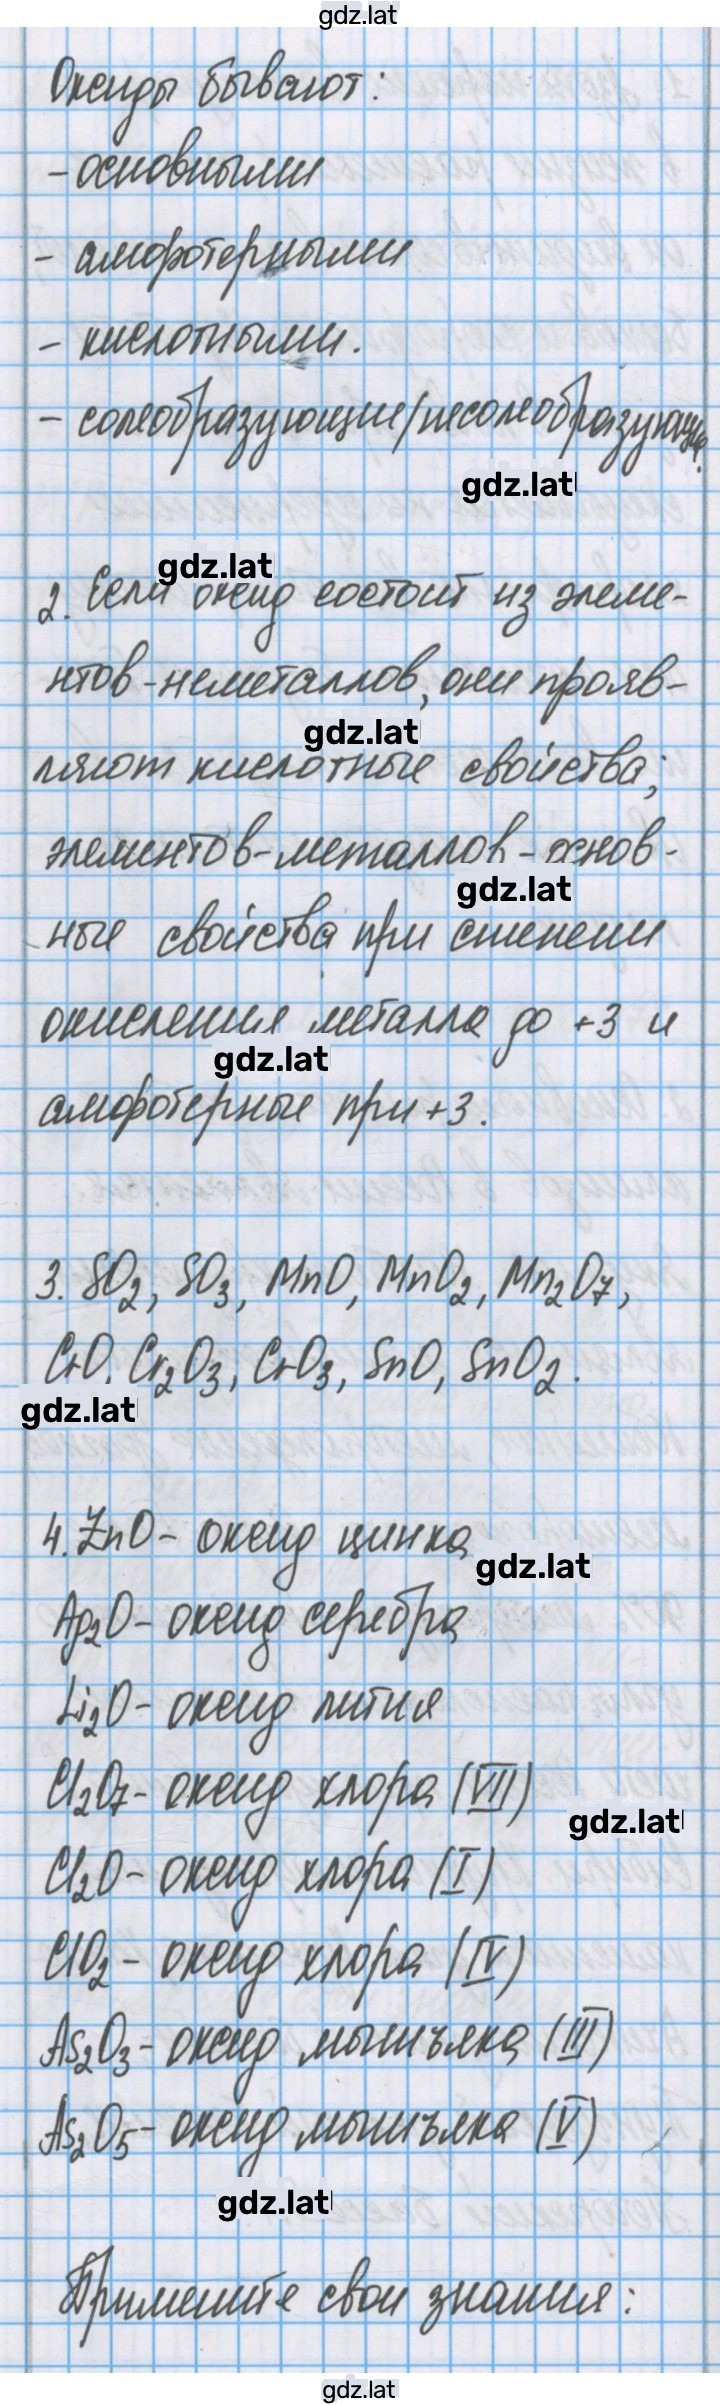 gdz.lat
Оксиды бывают:
- основными
- амфотерными
- кислотными.
- солеобразующие/несолеобразующие.
gdz.lat
gdz.lat
2. Если оксид состоит из элеме-
нтов-неметаллов, они прояв-
gdz.lat
ляют кислотные свойства;
элементов-металлов - основ-
gdz.lat
ные свойства при степени
окисления металла до +3 и
gdz.lat
амфотерные при +3.
3. SO₂, SO₃, MnO, MnO₂, Mn₂O₇,
CrO, Cr₂O₃, CrO₃, SnO, SnO₂.
gdz.lat
4. ZnO - оксид цинка
gdz.lat
Ag₂O - оксид серебра
Li₂O - оксид лития
Cl₂O₇ - оксид хлора (VII)
gdz.lat
Cl₂O - оксид хлора (I)
ClO₂ - оксид хлора (IV)
As₂O₃ - оксид мышьяка (III)
As₂O₅ - оксид мышьяка (V)
gdz.lat
Примените свои знания:
gdz.lat